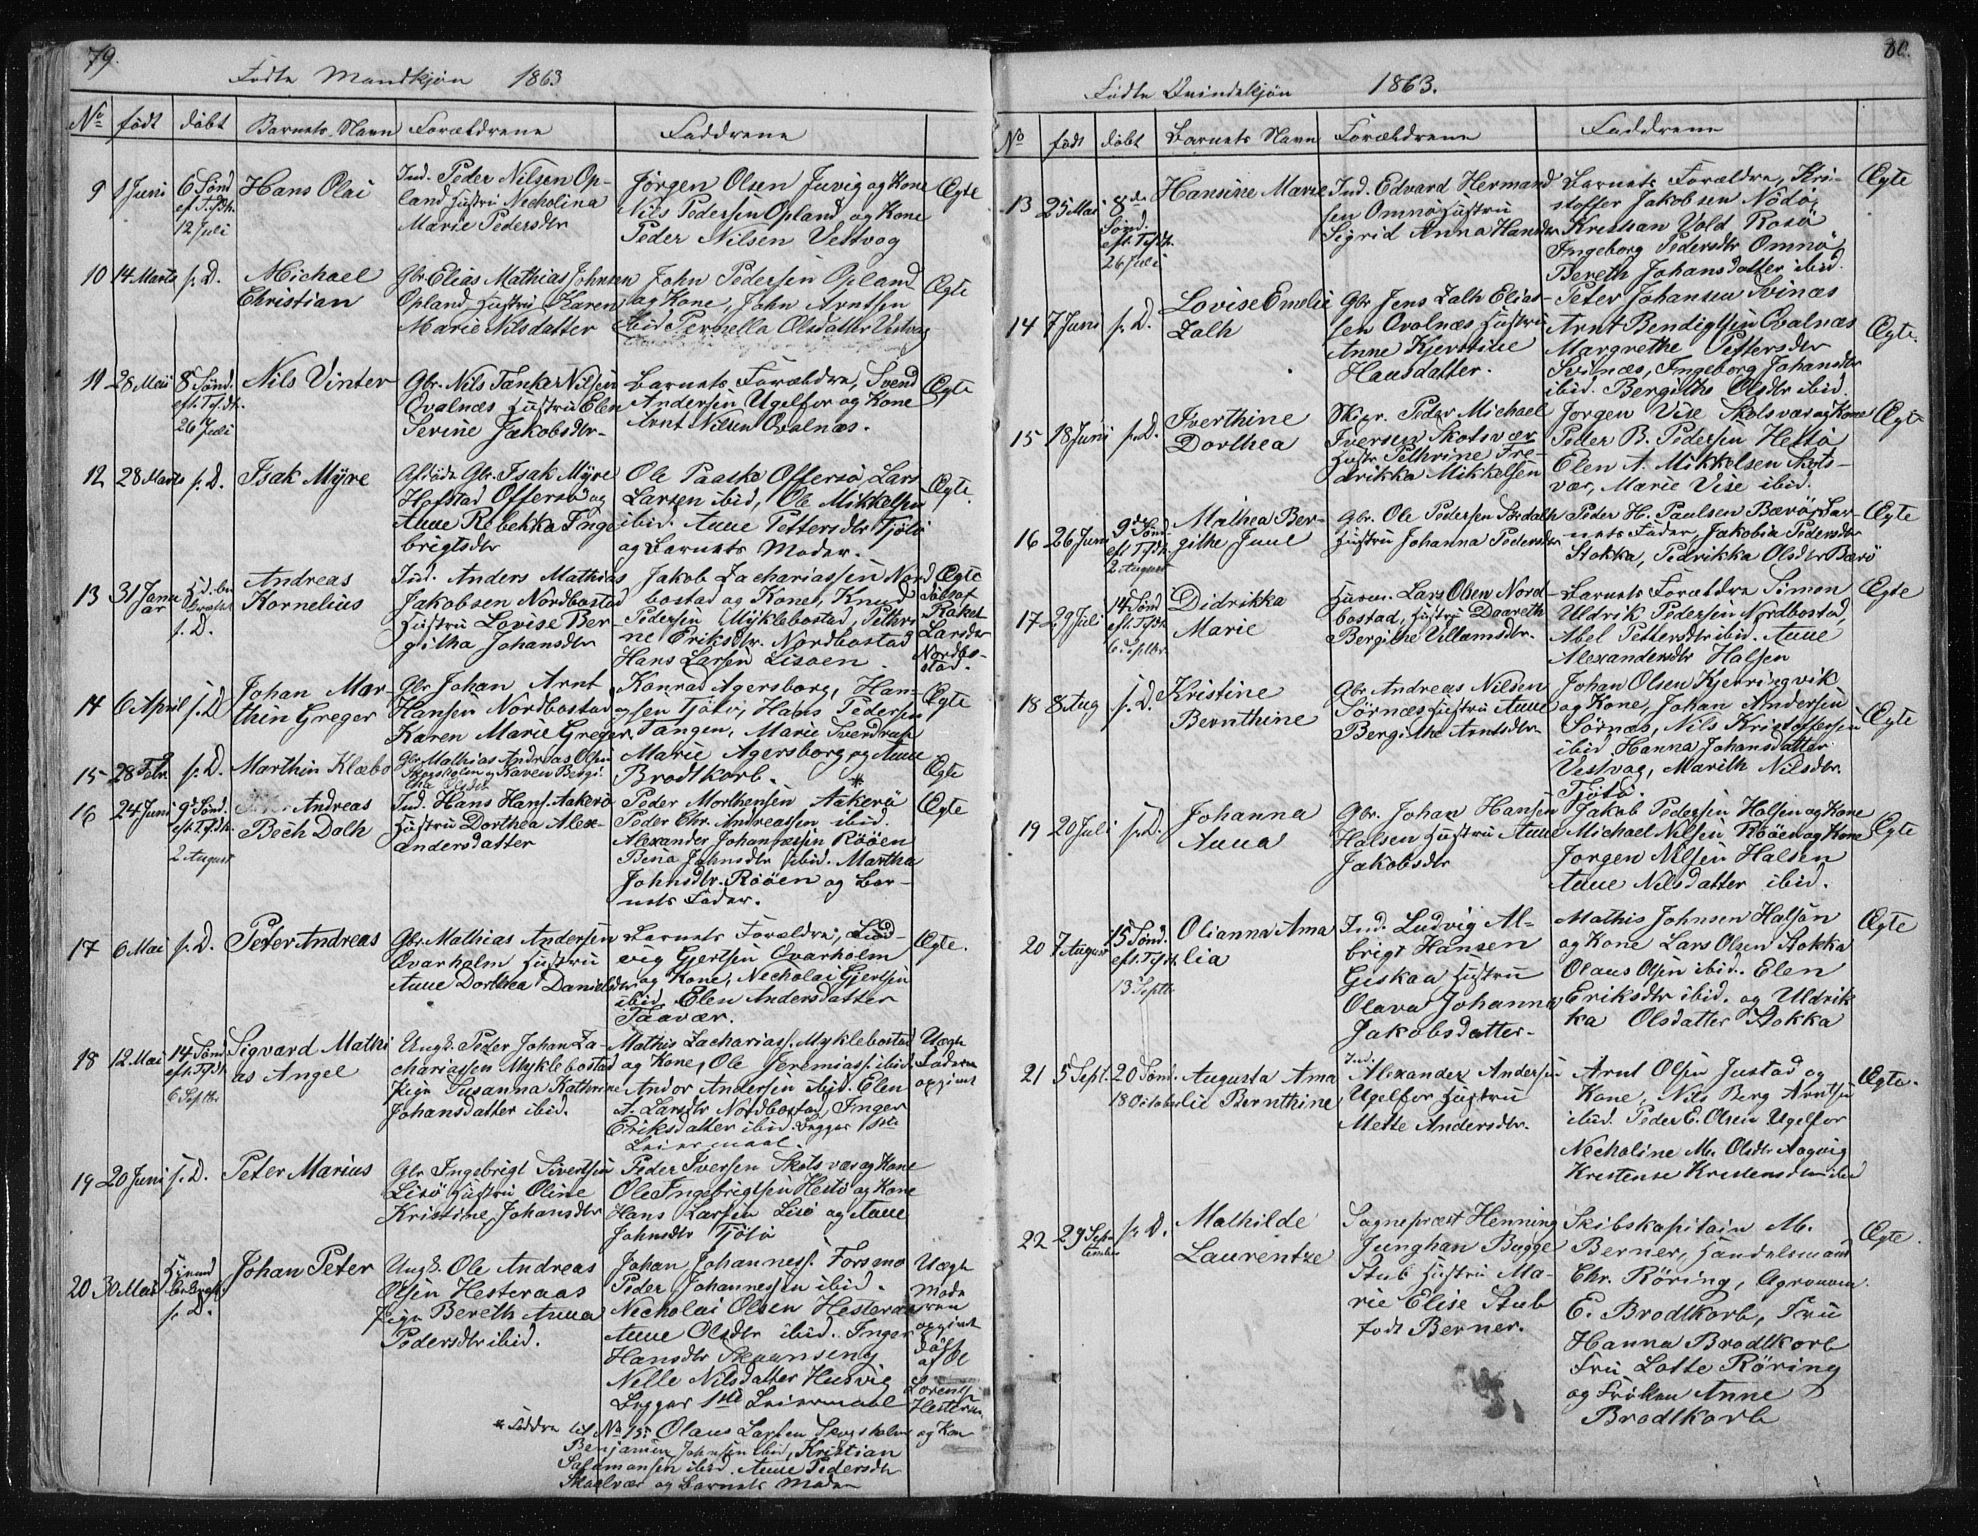 79.
Födte Mandkjøn 1863
No født døbt Barnets Navn Forældrene Faddrene
9 1 Juni 6 Sønd Hans Olai Ind. Peder Nilsen Op- Jørgen Olsen Juvig og Kone Ægte
ef. Tr.
12 Juli
land Hustru Necholina
Marie Pedersdtr
Nils Pedersen Opland og Kone
Peder Nilsen Vestvog
10 14 Marts s. D. Michael
Christian
Gbr Elias Mathias Johnsen
Opland Hustru Karen
Marie Nilsdatter
John Pedersen Opland
og Kone, John Arntsen
ibid Pernella Olsdatter Vestvog
Ægte
11 28 Mai 8 Sønd.
eft. Trf.dt.
26 Juli
Nils Vinter
Gbr. Nils Tanke Nilsen
Qvalnæs Hustru Elen
Serine Jakobsdtr
Barnets Forældre, Svend
Andersen Ugelfor og Kone
Arnt Nilsen Qvalnæs.
Ægte
12 28 Marts s. D. Isak Myre
Afdøde Gbr. Isak Myre
Hofstad Offersø og
Anne Rebekka Inge
brigtsdtr
Ole Paaske Offersø, Lars
Larsen ibid, Ole Mikkelsen
ibid. Anne Pettersdtr Tjøtø
og Barnets Moder.
Ægte.
13 31 Janu
ar
s. D.
Andreas
Kornelius
Ind. Anders Mathias
Jakobsen Nordbostad
Hustru Lovise Ber-
githa Johansdtr
Jakob Zachariassen Nord
bostad og Kone, Knud
Pedersen Myklebostad, Pethri
ne Eriksdtr. Nordbostad
Hans Larsen Lisøen.
Ægte
Døbt af
Rakel
Larsdtr
Nordbo-
stad.
14 6 April s. D. Johan Mar-
thin Greger
Gbr Johan Arnt
Hansen Nordbostad og
Karen Marie Greger
Konrad Agersborg, Han-
sen Tjøtø, Hans Pedersen
Tangen, Marie Sverdrup
Marie Agersborg og Anne
Brodtkorb. *
Ægte
15 28 Febr s. D. Marthin Klæbo
Gbr Mathias Andreas Olsen
Skogsholm og Karen Bergi-
tha Olsdtr
Ægte
16 24 Juni 9d Sønd.
eft. Trf.dt.
2 August
Andreas
Bech Dalh
Ind. Hans Hans. Aakerø
Hustru Dorthea Alex-
andersdatter
Peder Morthensen Aakerø
Peder Chr. Andreassen ibid.
Alexander Johannesen Røøen
Bena Johnsdtr ibid. Martha
Johnsdtr. Røøen og Bar-
nets Fader.
Ægte
17 6 Mai s. D. Peter Andreas
Gbr. Mathias Andersen
Qvarholm Hustru
Anne Dorthea Danielsdtr
Barnets Forældre, Lud-
vig Gjertsen Qvarholm
og Kone, Necholai Gjertsen
ibid. Elen Andersdatter
Taavær.
Ægte.
18 12 Mai 14 Sønd
eft. Trf.dt.
6 Septbr.
Sigvard Mathi
as Angel
Ungk. Peder Johan Za-
chariassen Myklebostad
Pige Susanna Kathrine
Johansdatter ibid.
Mathis Zachariass. Myklebostad
og Kone, Ole Jeremiass. ibid.
Andor Andersen ibid. Elen
A. Larsdtr Nordbostad, Inger
Eriksdatter ibid. Begges 1ste
Leiermaal.
Uægte
Faderen
opgivet
19 20 Juni s. D. Peter Marius
Gbr Ingebrigt Sivertsen
Lisø Hustru Oline
Kristine Johansdtr
Peder Iversen Skotsvær og Kone
Ole Ingebrigtsen Hestø og Kone
Hans Larsen Lisø og Anne
Johnsdtr Tjøtø
20 30 Mai Hjemd.
s. D.
Johan Peter
Ungk. Ole Andreas
Olsen Hesteraas
Pige Bereth Anna
Pedersdtr ibid.
Johan Johanness. Forsmo
Peder Johannessen ibid.
Necholai Olsen Hesteraas
Anne Olsdtr ibid. Inger
Hansdtr
Nelle Nilsdatter Husvig
Begges 1ste Leiermaal
Uægte
Mode
ren
opgivet
døbt
af
Lorents
Hesteraas
og Kone
* Faddre til No 15 Olaus Larsen Skogsholm
Benjamin Johnsen ibid, Kristian
Salamonsen ibid. Anne Pedersdtr
Skaalvær og Barnets Moder
80.
Födte Qvindekjøn 1863.
No født døbt Barnets Navn Forældrene Faddrene
13 25 Mai 8de
Sønd.
eft. Trf.dt.
26 Juli
Hansine Marie
Ind. Edvard Hermand
sen Omnø Hustru
Sigrid Anna Hansdtr
Barnets Forældre, Kri-
stoffer Jakobsen Nødø,
Kristian Vold Rosø
Ingeborg Pedersdtr Omnø
Bereth Johansdatter ibid.
Ægte
14 7 Juni s. D. Lovise Emelie
Zalh
Gbr Jens Zalh Elias-
sen Qvalnæs Hustru
Anne Kjerstine
Hansdatter.
Peter Johansen Svinæs
Arnt Bendigtsen Qvalnæs
Margrethe Pettersdtr
Svinæs, Ingeborg Johansdtr
ibid. Bergithe Olsdtr ibid.
Ægte.
15 18 Juni s. D. Iverthine
Dorthea
Skipr. Peder Michael
Iversen Skotsvær
Hustr. Pethrine Fre-
drikka Mikkelsen
Jørgen Vise Skotsvær og Kone
Peder B. Pedersen Hestø
Elen A. Mikkelsen Skots-
vær, Marie Vise ibid.
Ægte
16 26 Juni 9d Sønd
eft. Trf.dt.
2 August
Mathea Ber-
githe Juul
Gbr. Ole Pedersen Stordalh
Hustru Johanna Pedersdtr
Peder H. Paulsen Bærø, Bar-
nets Fader, Jakobia Pedersdtr
Stokka, Pedrikka Olsdtr Bærø
Ægte
17 29 Juli 14 Sønd
eft. Trf.dt.
6 Septbr.
Didrikka
Marie
Husm. Lars Olsen Nord-
bostad, Hustru Doareth
Bergithe Villamsdtr.
Barnets Forældre Simon
Uldrik Pedersen Nordbostad,
Abel Pettersdtr ibid. Anne
Alexandersdtr Halsen
Ægte
18 8 Aug s. D. Kristine
Bernthine
Gbr Andreas Nilsen
Sørnæs Hustru Anne
Bergithe Arntsdtr
Johan Olsen Kjerringvik
og Kone, Johan Andersen
Sørnæs, Nils Kristoffersen
ibid Hanna Johansdatter
Vestvog, Marith Nilsdtr.
Tjøtø.
Ægte
19 20 Juli s. D. Johanna
Anna
Gbr. Johan Hansen
Halsen Hustru Anne
Jakobsdtr
Jakob Pedersen Halsen og Kone
Michael Nilsen Røøen og Kone
Jørgen Nilsen Halsen
Anne Nilsdatter ibid.
Ægte
20 7 August 15 Sønd.
eft. Trf.dt.
13 Septbr
Olianna Ama
lia
Ind. Ludvig Al-
brigt Hansen
Giskaa Hustru
Olava Johanna
Jakobsdatter.
Mathis Johnsen Halsøn
og Kone Lars Olsen Stokka
Olaus Olsen ibid. Elen
Eriksdtr ibid. og Uldrik
ka Olsdatter Stokka
Ægte
21 5 Sept. 20 Sønd.
18 October
Augusta Ama
lie Bernthine
Ind.
Alexander Andersen
Ugelfor Hustru
Mette Andersdtr.
Arnt Olsen Justad og
Kone, Nils Berg Arntsen
ibid. Peder E. Olsen Ugelfor
Necholine M. Olsdtr Aagvig
Kristense Kristensdtr ibid
Ægte.
22 29 Sept-
ember
s. D. Mathilde
Laurentze
Sognepræst Henning
Junghan Bugge
Stub Hustru Ma-
rie Elise Stub
født Berner.
Skibskapitain M.
Berner, Handelsmand
Chr. Röring, Agronom
E. Brodtkorb, Fru
Hanna Brodtkorb
Fru Lotte Röring
og Frøken Anne
Brodtkorb
Ægte.